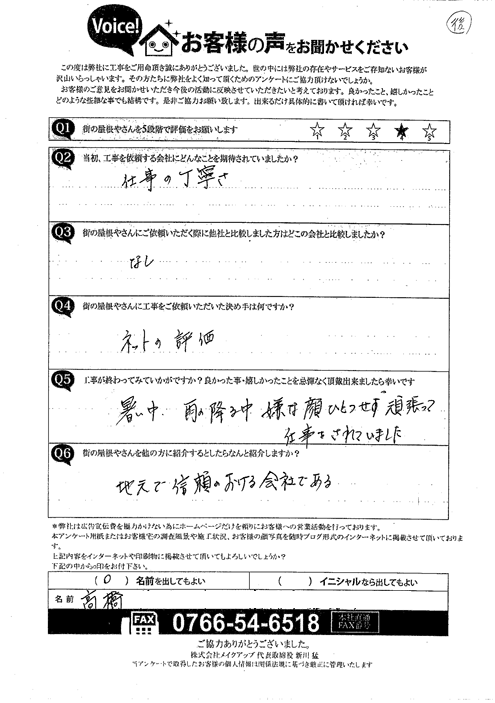 Voice!
お客様の声をお聞かせください
この度は弊社に工事をご用命頂き誠にありがとうございました。世の中には弊社の存在やサービスをご存知ないお客様が
沢山いらっしゃいます。その方たちに弊社をよく知って頂くためのアンケートにご協力頂けないでしょうか。
お客様のご意見をお聞かせいただき今後の活動に反映させていただきたいと考えております。良かったこと、嬉しかったこと
どのような些細な事でも結構です。是非ご協力お願い致します。出来るだけ具体的に書いて頂ければ幸いです。
Q1 街の屋根やさんを5段階で評価をお願いします
1 2 3 4 5
Q2 当初、工事を依頼する会社にどんなことを期待されていましたか?
仕事の丁寧さ
Q3 街の屋根やさんにご依頼いただく際に他社と比較しました方はどこの会社と比較しましたか?
なし
Q4 街の屋根やさんに工事をご依頼いただいた決め手は何ですか?
ネットの評価
Q5 工事が終わってみていかがですか?良かった事・嬉しかったことを忌憚なく頂戴出来ましたら幸いです
暑い中 雨の降る中 嫌な顔ひとつせず 頑張って
仕事をされていました
Q6 街の屋根やさんを他の方に紹介するとしたらなんと紹介しますか?
地元で信頼のおける会社である
*弊社は広告宣伝費を極力かけない為にホームページだけを頼りにお客様への営業活動を行っております。
本アンケート用紙またはお客様宅の調査風景や施工状況、お客様の顔写真を随時ブログ形式のインターネットに掲載させて頂いております。
上記内容をインターネットや印刷物に掲載させて頂いてもよろしいでしょうか?
下記の中から○印をお付け下さい。
( ○ ) 名前を出してもよい ( ) イニシャルなら出してもよい
名前 高橋
FAX 0766-54-6518 本社直通 FAX番号
ご協力ありがとうございました。
株式会社メイクアップ 代表取締役 新川 猛
*アンケートで取得したお客様の個人情報は関係法規に基づき厳正に管理いたします